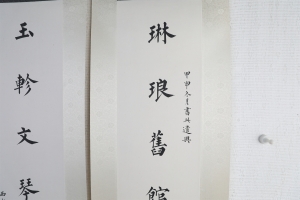 琳琅舊館
甲申冬月書以遣興
玉軫文琴